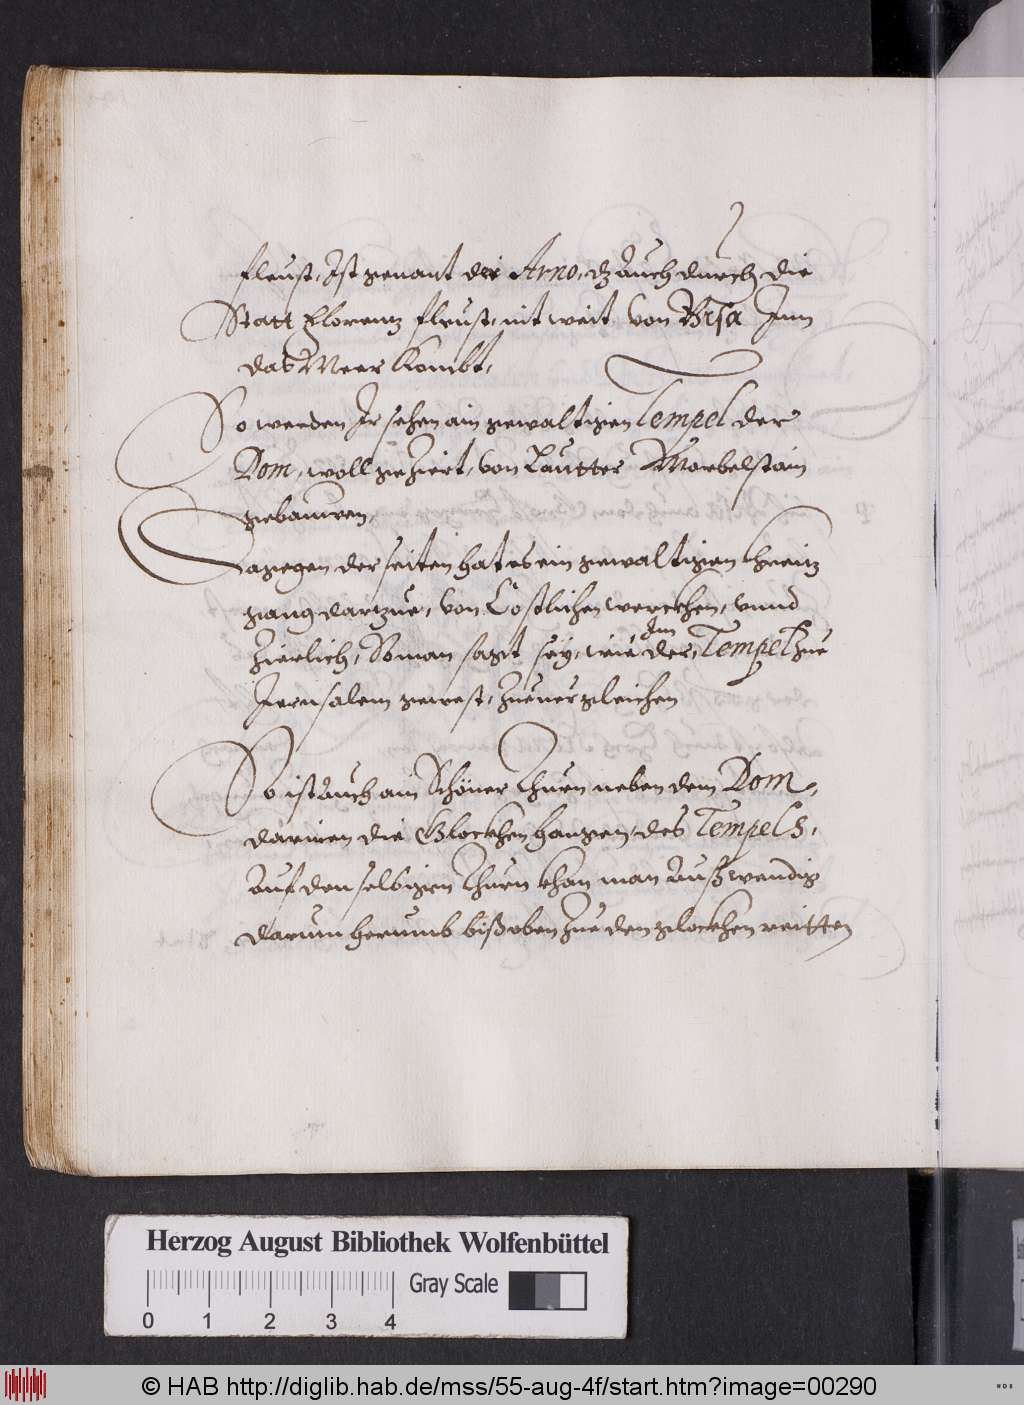 fleust, Ist genant der Arno, dz auch durch die
Statt Florentz fleust, nit weit von Bisa Inn
das Meer kombt,
So werden Ir sehen ain gewaltigen Tempel der
Dom, woll geziert, von Lautter Marbelstain
gebauwen,
Dagegen der seiten hat es ein gewaltigen Chreitz
gang dartzue, von Costlichen werckhen, vnnd
Zierlich, So man sagt sey, wie der, Im Tempel zue
Jerusalem gewest, Zuuergleichen
So ist auch ain Schöner Thurn neben dem Dom,
darinen die Glockhen hangen, des Tempels,
Auf den selbigen Thurn khan man Außwendig
darum herumb biß oben Zue den glockhen reitten
Herzog August Bibliothek Wolfenbüttel
Gray Scale
0 1 2 3 4
© HAB http://diglib.hab.de/mss/55-aug-4f/start.htm?image=00290